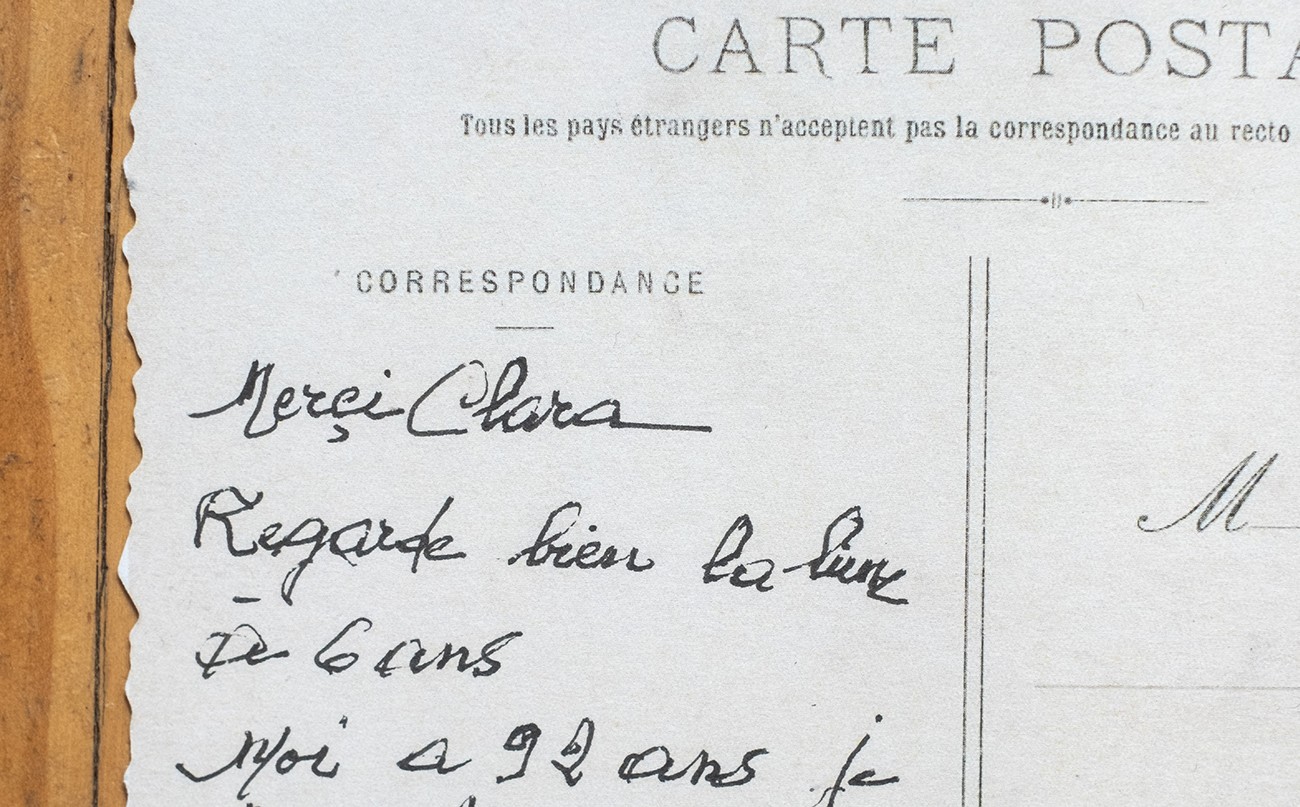 CARTE POSTA
Tous les pays étrangers n'acceptent pas la correspondance au recto
CORRESPONDANCE
Merçi Clara
Regarde bien la
M
De 6 ans
Moi a 92 ans je